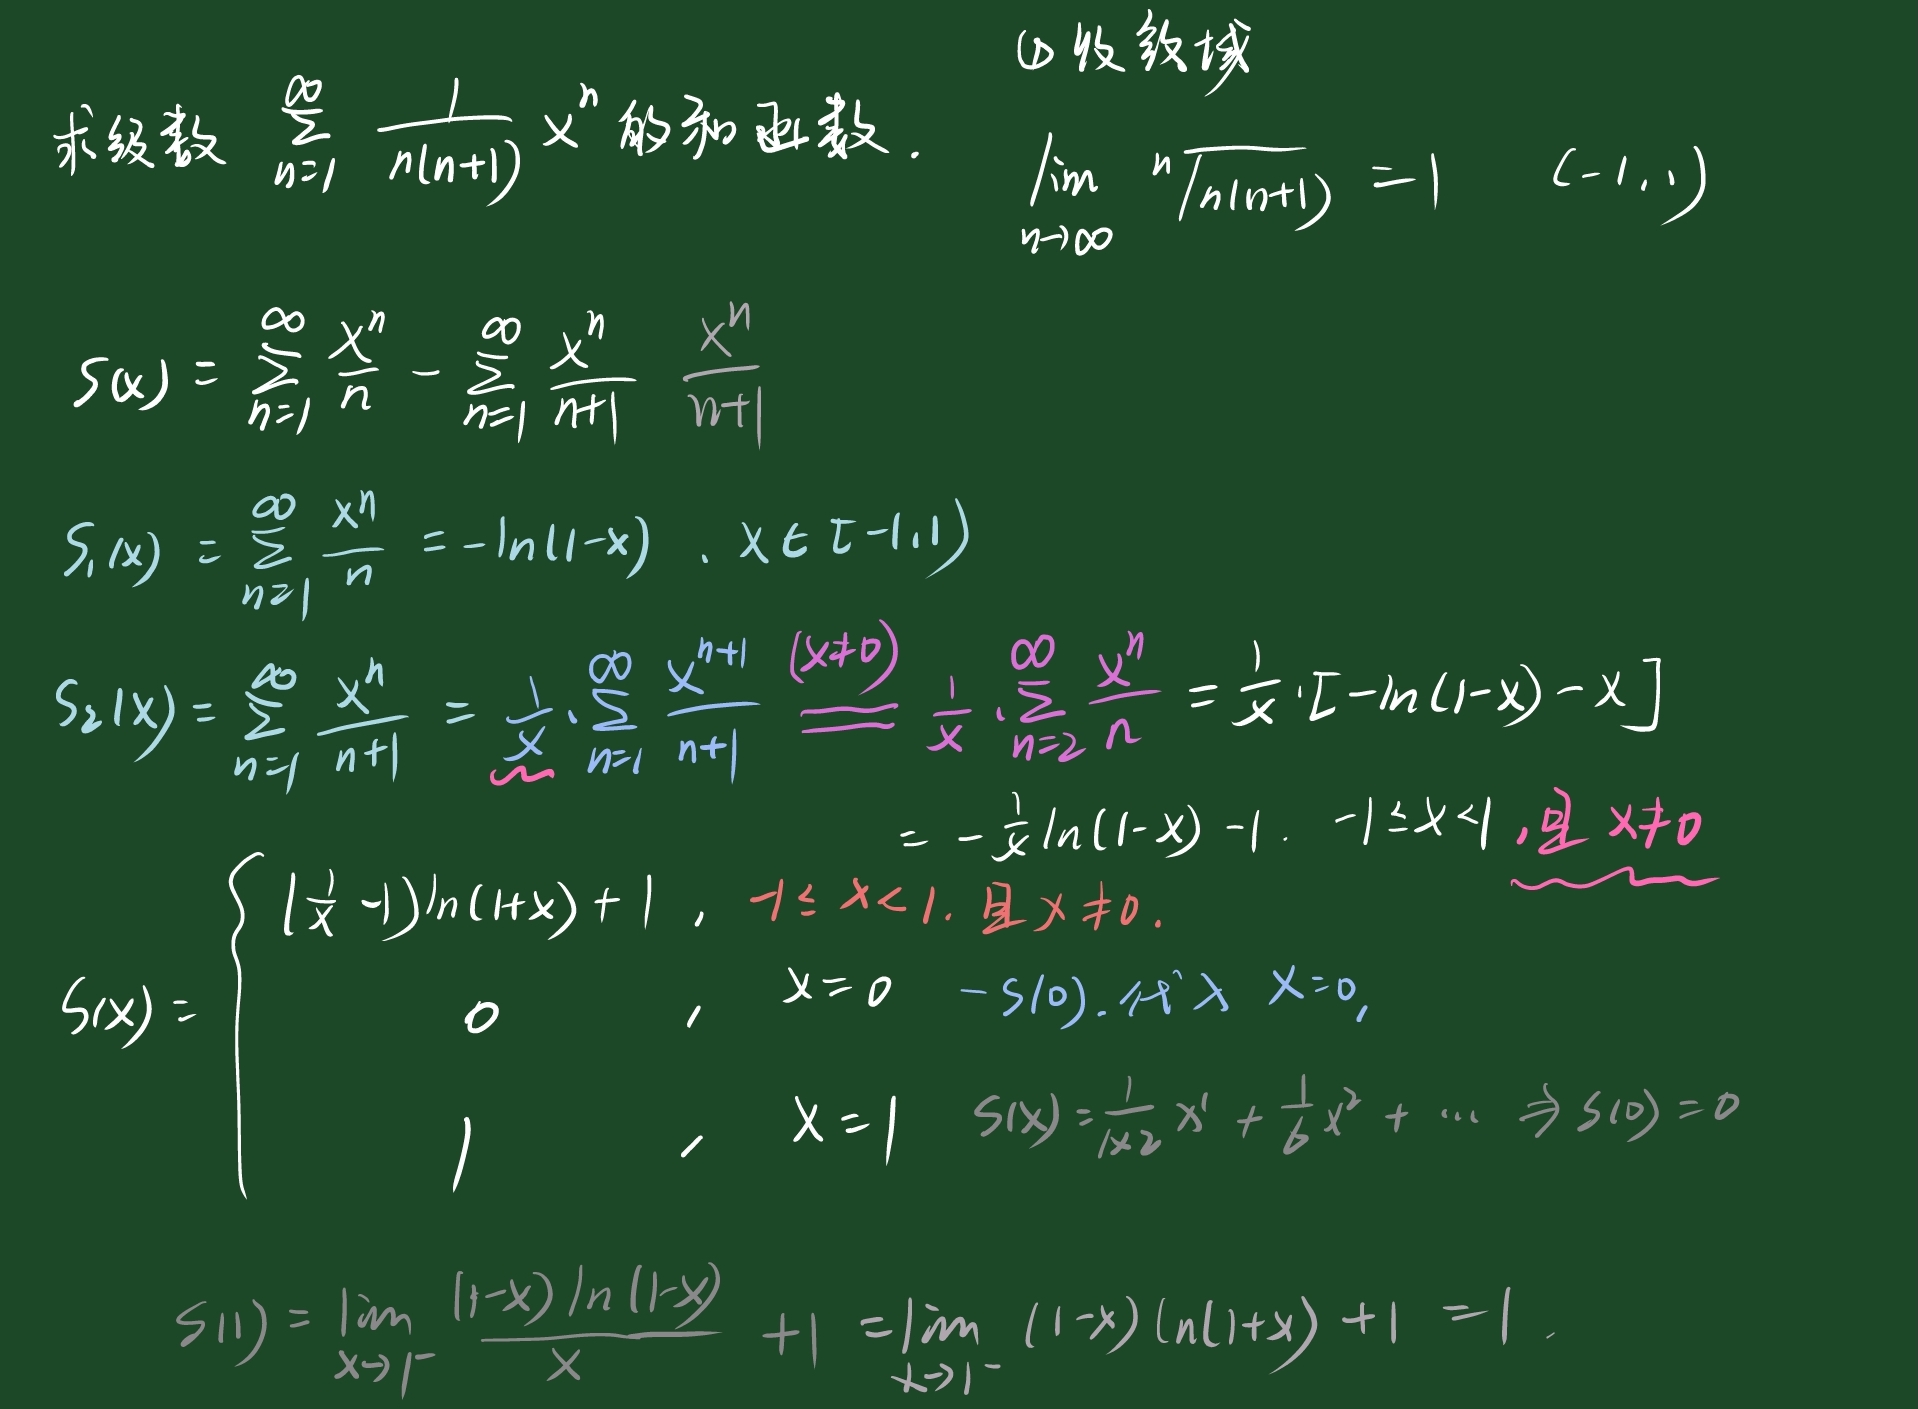 ① 收敛域
求级数 $\sum_{n=1}^{\infty} \frac{1}{n(n+1)} x^n$ 的和函数.
$\lim_{n\to\infty} \sqrt[n]{n(n+1)} = 1$ (-1,1)
$S(x) = \sum_{n=1}^{\infty} \frac{x^n}{n} - \sum_{n=1}^{\infty} \frac{x^n}{n+1}$ $\frac{x^n}{n+1}$
$S_1(x) = \sum_{n=1}^{\infty} \frac{x^n}{n} = -\ln(1-x)$ , $x \in [-1,1)$
$S_2(x) = \sum_{n=1}^{\infty} \frac{x^n}{n+1} = \frac{1}{x} \cdot \sum_{n=1}^{\infty} \frac{x^{n+1}}{n+1} \overset{(x \neq 0)}{=} \frac{1}{x} \cdot \sum_{n=2}^{\infty} \frac{x^n}{n} = \frac{1}{x} \cdot [-\ln(1-x) - x]$
$= -\frac{1}{x} \ln(1-x) - 1.$ $-1 \le x < 1$ ,且 $x \neq 0$
$S(x) = \begin{cases} (\frac{1}{x} - 1)\ln(1+x) + 1, & -1 \le x < 1. 且 x \neq 0. \\ 0, & x = 0 \\ 1, & x = 1 \end{cases}$
- S(0). 代入 x=0,
$S(x) = \frac{1}{1 \times 2} x^1 + \frac{1}{6} x^2 + \cdots \Rightarrow S(0) = 0$
$S(1) = \lim_{x \to 1^-} \frac{(1-x)\ln(1-x)}{x} + 1 = \lim_{x \to 1^-} (1-x)\ln(1+x) + 1 = 1.$